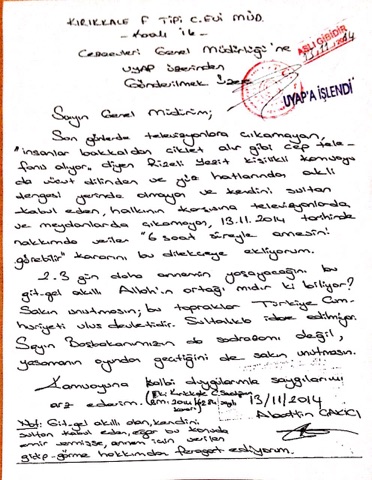 KIRIKKALE F TİPİ C.EVİ MÜD.
- Koğ. 16 -
Cezaevleri Genel Müdürlüğü'ne
UYAP üzerinden
Gönderilmek Üzere
ASLI GİBİDİR
13.11.2014
UYAP'A İŞLENDİ
Sayın Genel Müdürüm;
Son günlerde televizyonlara çıkamayan,
"insanlar bakkaldan ciklet alır gibi cep tele-
fonu alıyor" diyen Rizeli Yezit kişilikli konuşu
da vücut dilinden ve yüz hatlarından akli
dengesi yerinde olmayan ve kendini sultan
kabul eden, halkının karşısına televizyonlarda
ve meydanlarda çıkamayan, 13.11.2014 tarihinde
hakkımda verilen "6 saat süreyle annesini
görebilir" kararını bu dilekçeye ekliyorum.
2-3 gün daha annemin yaşayacağını bu
git-gel akıllı Allah'ın ortağı mıdır ki biliyor?
Sakın unutmasın; bu topraklar Türkiye Cum-
huriyeti ulus devletidir. Sultanlıkla idare edilmiyor.
Sayın Başbakanımızın da sadrazamı değil,
yasamanın oyunda geçtiğini de sakın unutmasın.
Kamuoyuna kalbi duygularımla saygılarımı
arz ederim.
13/11/2014
Alaattin ÇAKICI
Not: Git-gel akıllı olan, kendini
sultan kabul eden, eğer bu konuda
emir vermişse, annem için verilen
gidip-görme hakkımdan feragat ediyorum.